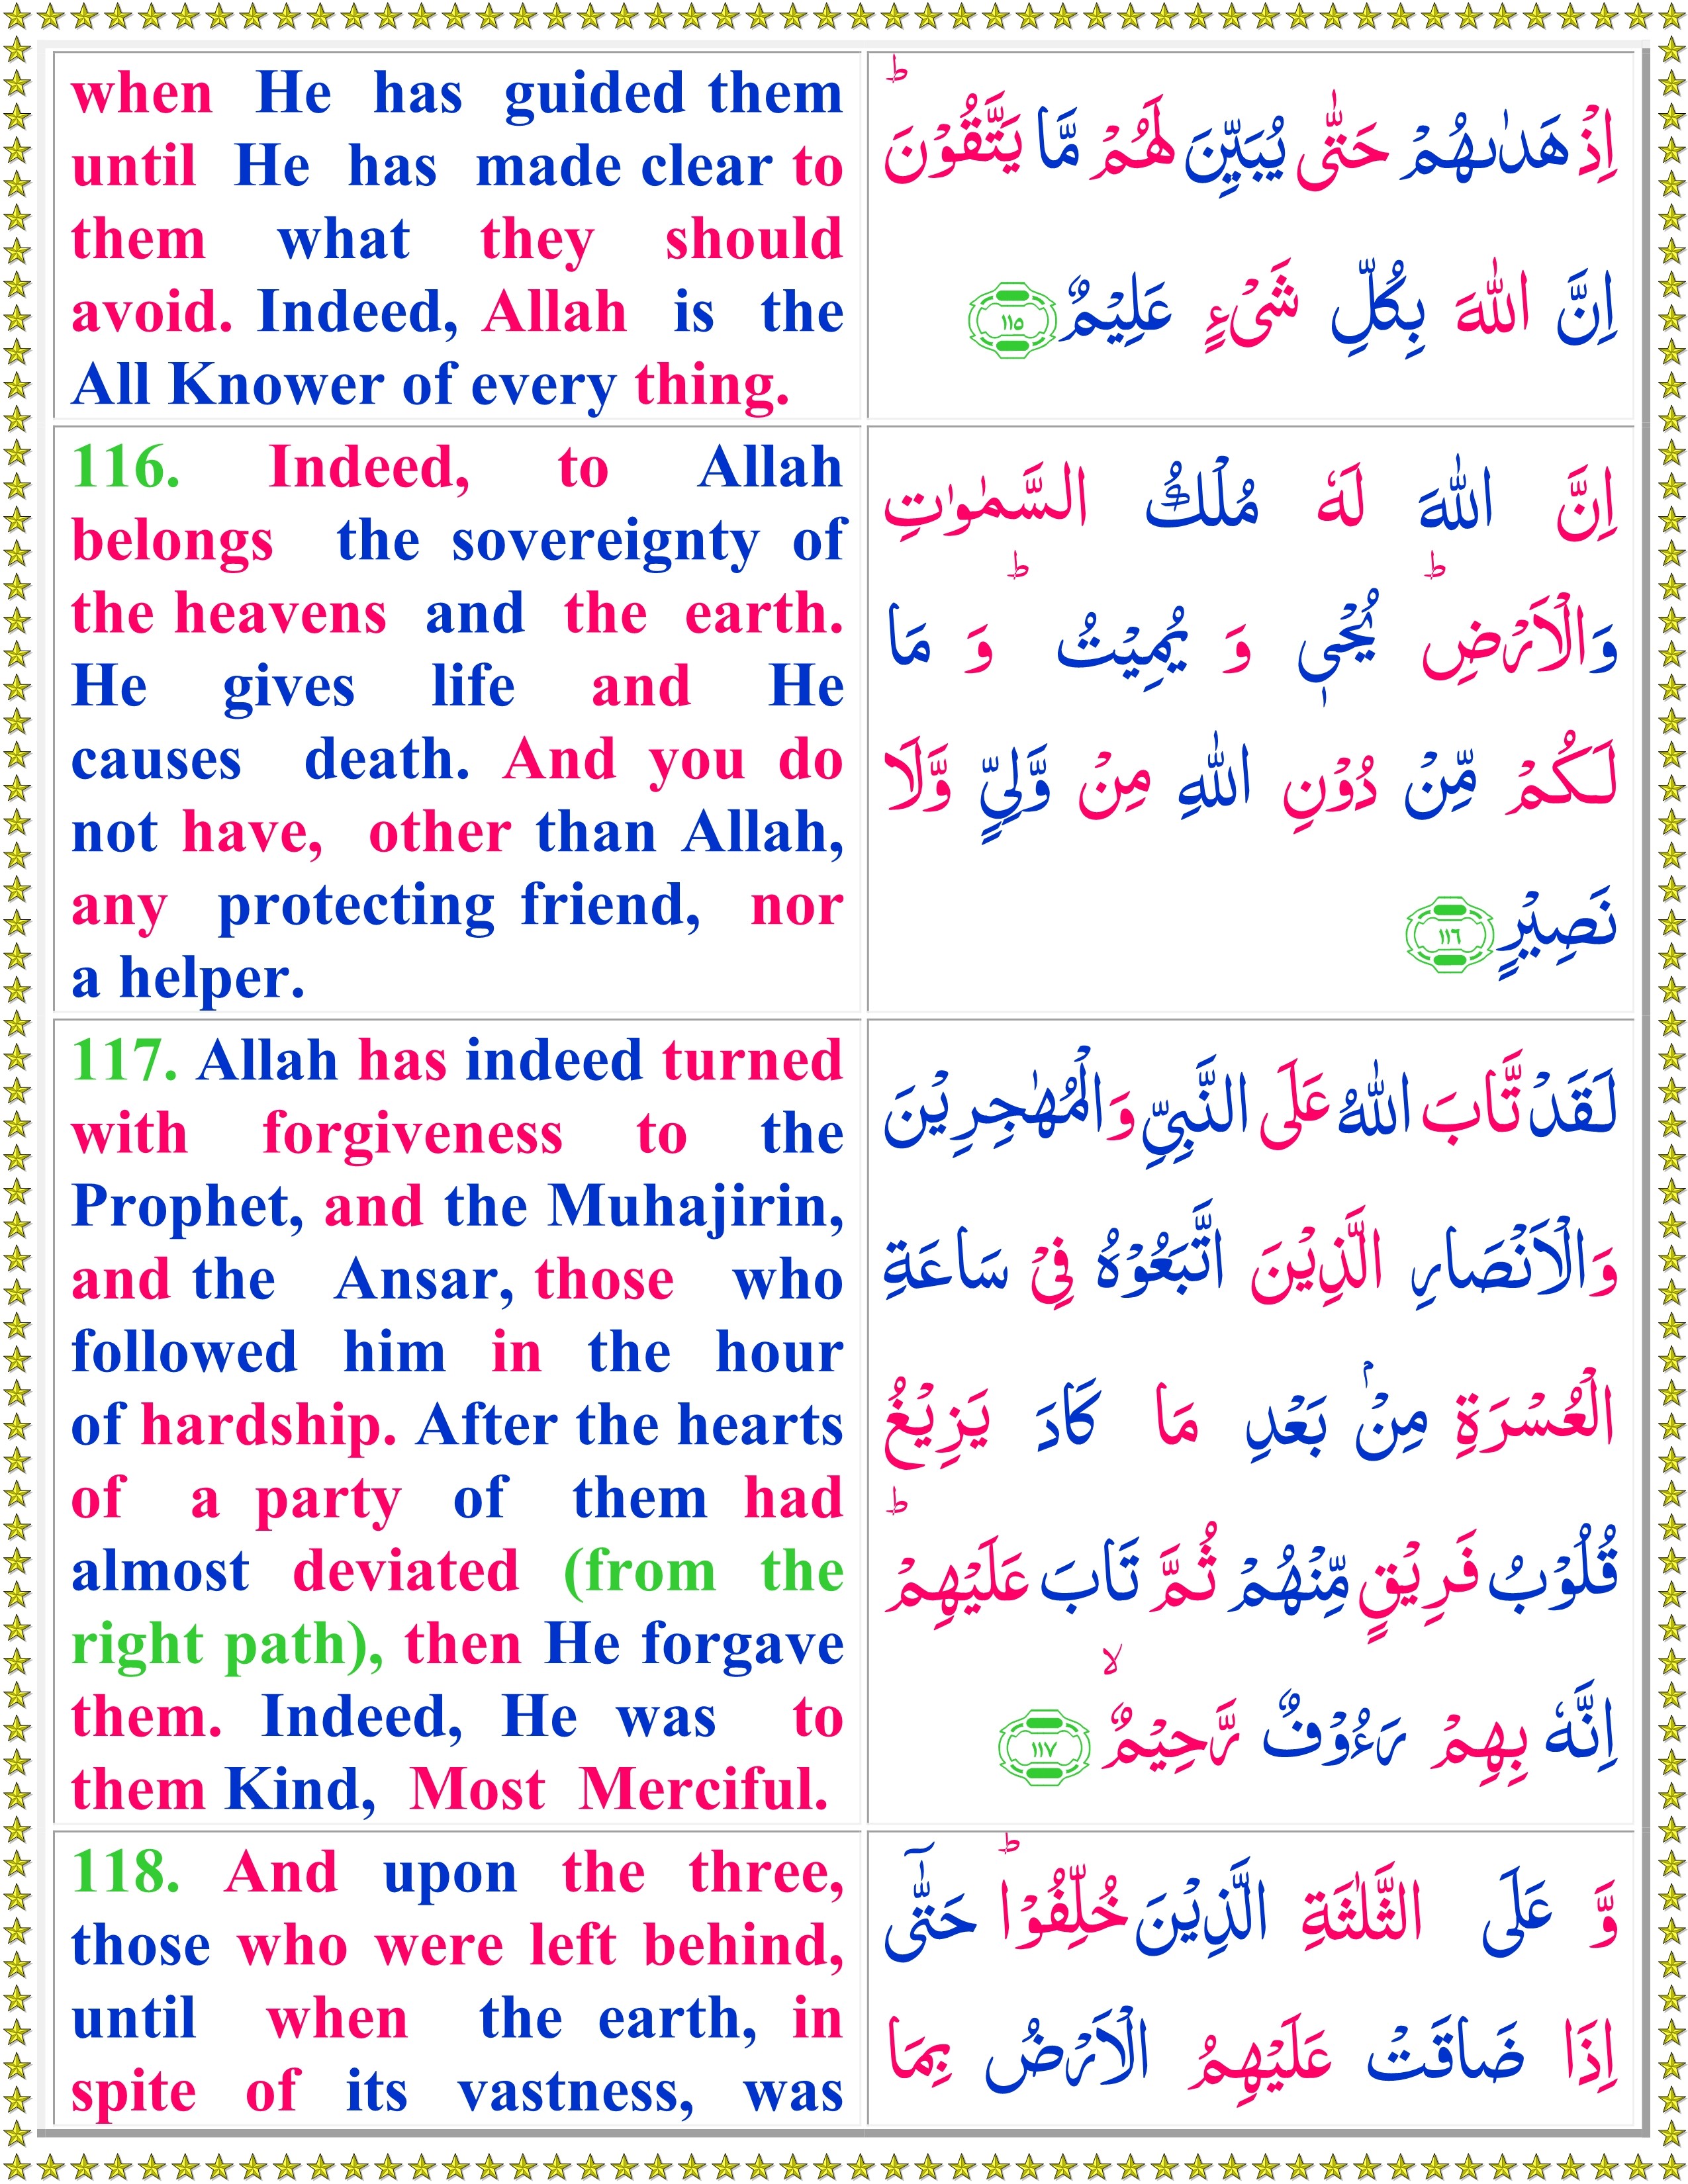 when He has guided them
until He has made clear to
them what they should
avoid. Indeed, Allah is the
All Knower of every thing.
اِذْ هَدٰىهُمْ حَتّٰى يُبَيِّنَ لَهُمْ مَّا يَتَّقُوْنَ ؕ
اِنَّ اللّٰهَ بِكُلِّ شَىْءٍ عَلِيْمٌ ١١٥
116. Indeed, to Allah
belongs the sovereignty of
the heavens and the earth.
He gives life and He
causes death. And you do
not have, other than Allah,
any protecting friend, nor
a helper.
اِنَّ اللّٰهَ لَهٗ مُلْكُ السَّمٰوٰتِ
وَالْاَرْضِ ؕ يُحْىٖ وَ يُمِيْتُ ؕ وَ مَا
لَـكُمْ مِّنْ دُوْنِ اللّٰهِ مِنْ وَّلِىٍّ وَّلَا
نَصِيْرٍ ١١٦
117. Allah has indeed turned
with forgiveness to the
Prophet, and the Muhajirin,
and the Ansar, those who
followed him in the hour
of hardship. After the hearts
of a party of them had
almost deviated (from the
right path), then He forgave
them. Indeed, He was to
them Kind, Most Merciful.
لَـقَدْ تَّابَ اللّٰهُ عَلَى النَّبِىِّ وَالْمُهٰجِرِيْنَ
وَالْاَنْصَارِ الَّذِيْنَ اتَّبَعُوْهُ فِىْ سَاعَةِ
الْعُسْرَةِ مِنْۢ بَعْدِ مَا كَادَ يَزِيْغُ
قُلُوْبُ فَرِيْقٍ مِّنْهُمْ ثُمَّ تَابَ عَلَيْهِمْ ؕ
اِنَّهٗ بِهِمْ رَءُوْفٌ رَّحِيْمٌ ۙ ١١٧
118. And upon the three,
those who were left behind,
until when the earth, in
spite of its vastness, was
وَّ عَلَى الثَّلٰثَةِ الَّذِيْنَ خُلِّفُوْا ؕ حَتّٰۤى
اِذَا ضَاقَتْ عَلَيْهِمُ الْاَرْضُ بِمَا